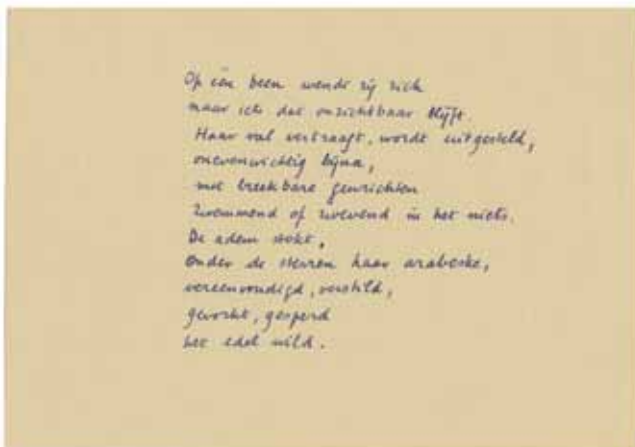 Op één been wendt zij zich
naar iets dat onzichtbaar blijft.
Haar val vertraagt, wordt uitgesteld,
onevenwichtig bijna,
met breekbare gewrichten
zwemmend of zwevend in het niets.
De adem stokt,
onder de sterren haar arabeske,
vereenvoudigd, verstild,
gevorkt, gesperd
het edel wild.